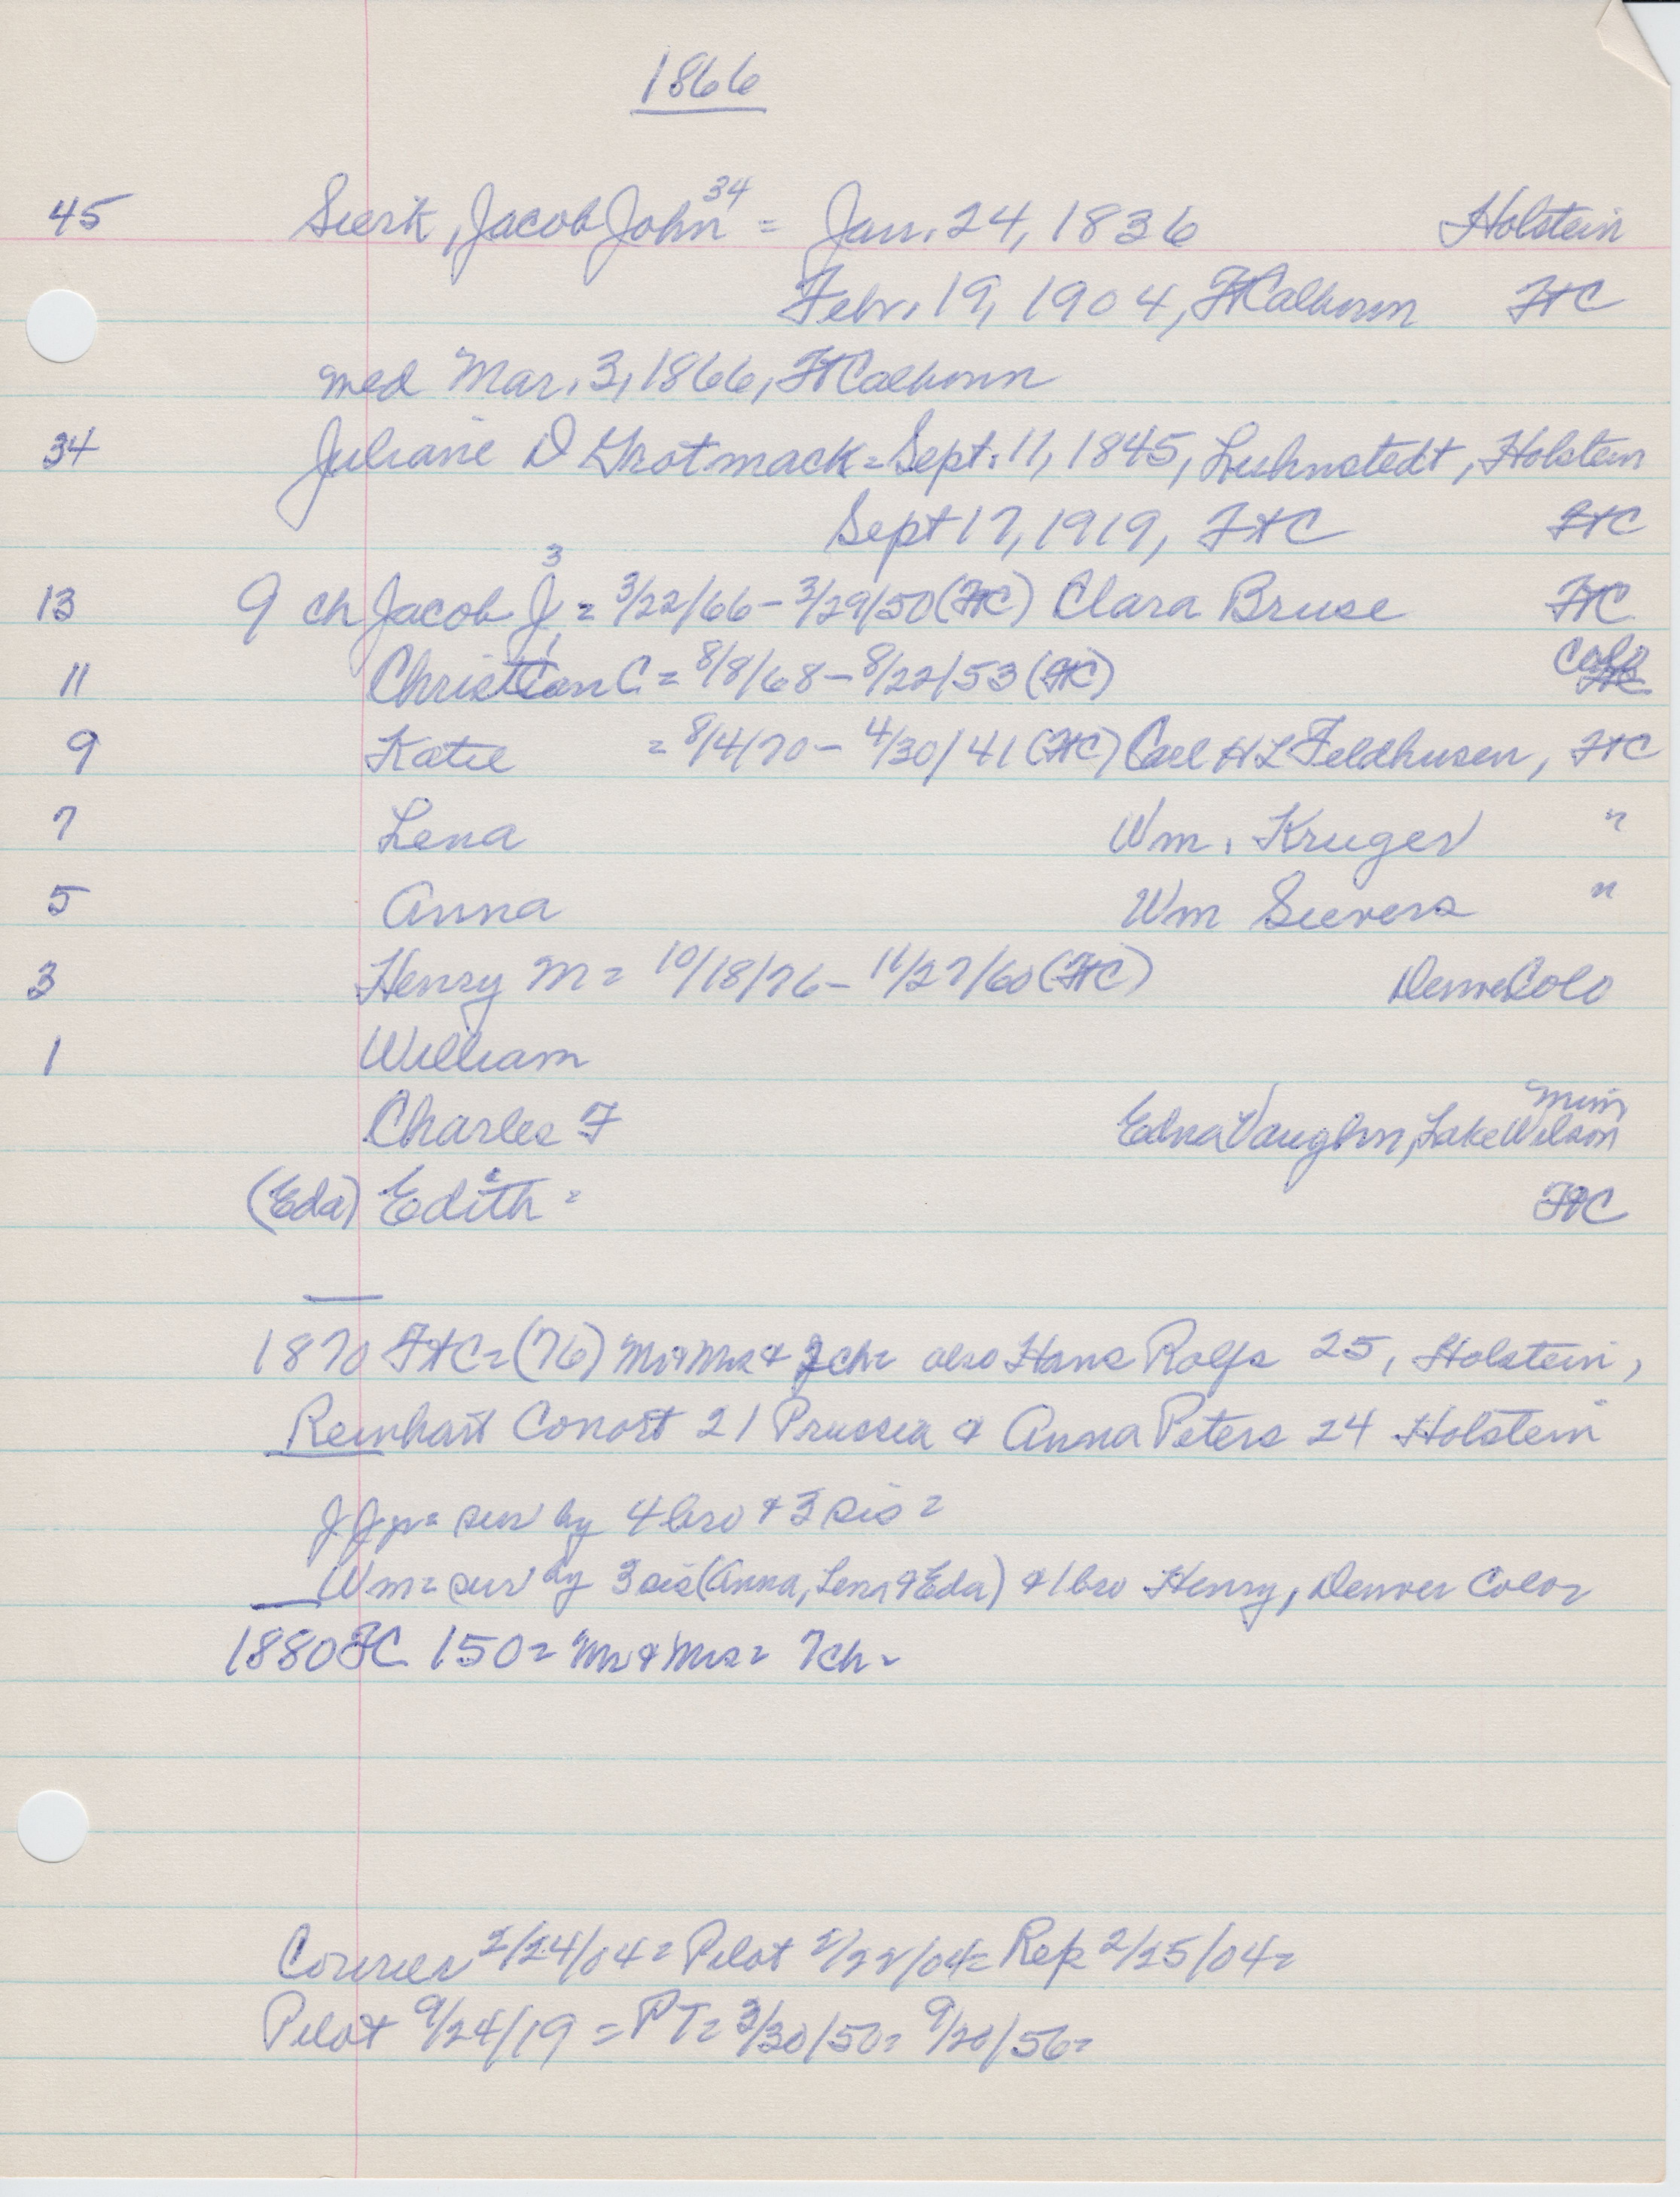 1866
45 Sierk, Jacob John 34 = Jan. 24, 1836 Holstein
Febr. 19, 1904, FtCalhoun FtC
med Mar. 3, 1866, FtCalhoun
34 Juliane D Grotmack = Sept. 11, 1845, Luhnstedt, Holstein
Sept 17, 1919, FtC FtC
13 9 ch Jacob J, 3 = 3/22/66 - 3/29/50 (FtC) Clara Bruse FtC
11 Christian C. 1 = 8/8/68 - 8/22/53 (FtC) Calif
9 Katie = 8/4/70 - 4/30/41 (FtC) Carl H L Feldhusen, FtC
7 Lena Wm. Kruger "
5 Anna Wm Sievers "
3 Henry M = 10/18/76 - 11/27/60 (FtC) Denver Colo
1 William
Charles F Edna Vaughn, Lake Wilson Minn
(Eda) Edith = FtC
1870 FtC = (76) Mr & Mrs & 2 ch = also Hans Rolfs 25, Holstein,
Reinhart Conort 21 Prussia & Anna Peters 24 Holstein
J J jr = sur by 4 bro & 3 sis =
Wm = sur by 3 sis (Anna, Lena & Eda) & 1 bro Henry, Denver Color
1880 FC 150 = Mr & Mrs = 7 ch =
Courier 2/24/04 = Pilot 2/22/04 = Rep 2/25/04 =
Pilot 9/24/19 = PT = 3/30/50 = 9/20/56 =